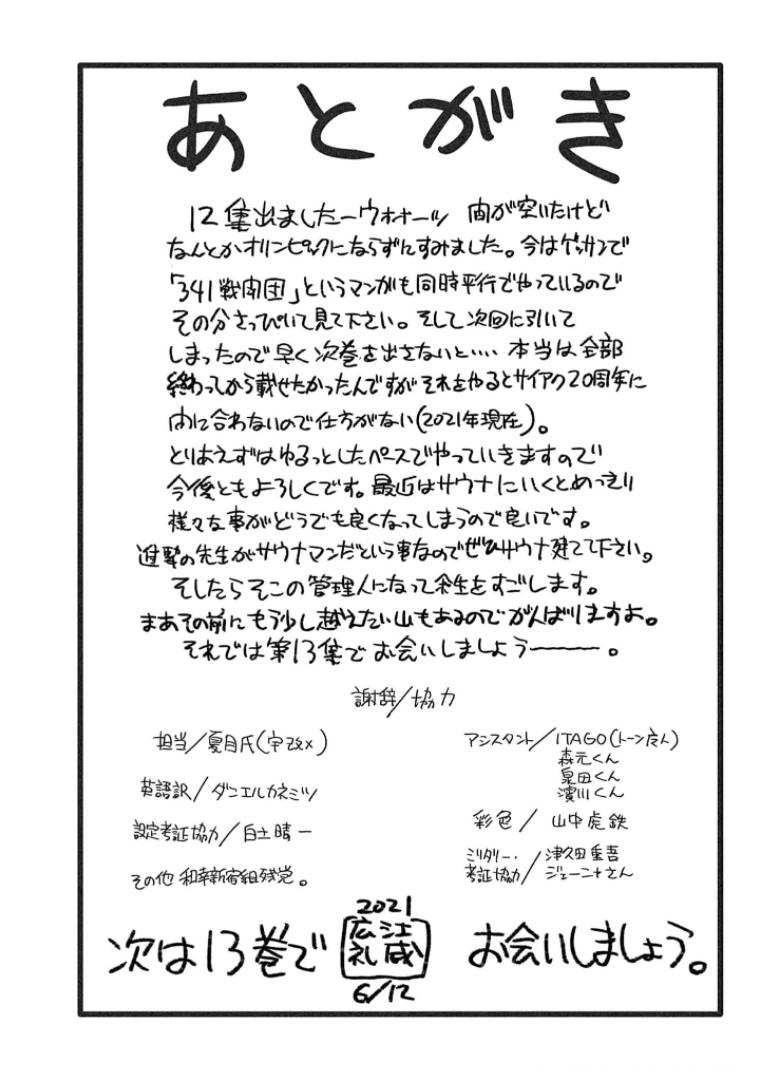 あとがき
12集出ましたーウオオーッ 間が空いたけど
なんとかオリンピックにならずにすみました。今はゲッサンで
「341戦闘団」というマンガも同時平行でやっているので
その分さっぴいて見て下さい。そして次回に引いて
しまったので早く次巻を出さないと‥‥ 本当は全部
終わってから載せたかったんですがそれをやるとサイアク20周年に
間に合わないので仕方がない(2021年現在)。
とりあえずはゆるっとしたペースでやっていきますので
今後ともよろしくです。最近はサウナにいくとめっきり
様々な事がどうでも良くなってしまうので良いです。
進撃の先生がサウナマンだという事なのでぜひサウナ建てて下さい。
そしたらそこの管理人になって余生をすごします。
まあその前にもう少し越えたい山もあるのでがんばりますよ。
それでは第13集でお会いしましょうー。
謝辞/協力
担当/夏目氏
英語訳/ダニエルカネミツ
設定考証協力/白土晴一
その他 和幸新宿組残党。
アシスタント/ITAGO(トーン広人)
森元くん
泉田くん
濱川くん
彩色/山中虎鉄
ミリタリー・考証協力/津久田重吾
ジェーニャさん
次は13巻で
2021
広江
礼威
6/12
お会いしましょう。